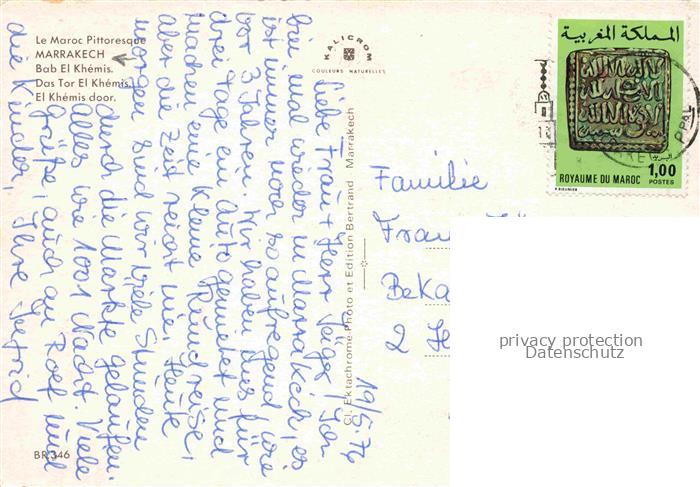 Le Maroc Pittoresque
MARRAKECH
Bab El Khémis.
Das Tor El Khémis.
El Khémis door.
KALICROM
COULEURS NATURELLES
19/5.76
Liebe Frau + Herr Geiger, Ich
bin mal wieder in Marrakech, es
ist immer noch so aufregend wie
vor 3 Jahren. Wir haben uns für
drei Tage ein Auto gemietet und
machen eine kleine Rundreise,
aber die Zeit reicht nie. Heute
morgen sind wir viele Stunden
durch die Märkte gelaufen.
Alles wie 1001 Nacht. Viele
Grüße, auch an Rolf und
die Kinder, Ihre
BR 346
Cl. Ektachrome-Photo et Edition Bertrand - Marrakech
Familie
Beka
2
المملكة المغربية
1,00
POSTES
ROYAUME DU MAROC
privacy protection
Datenschutz